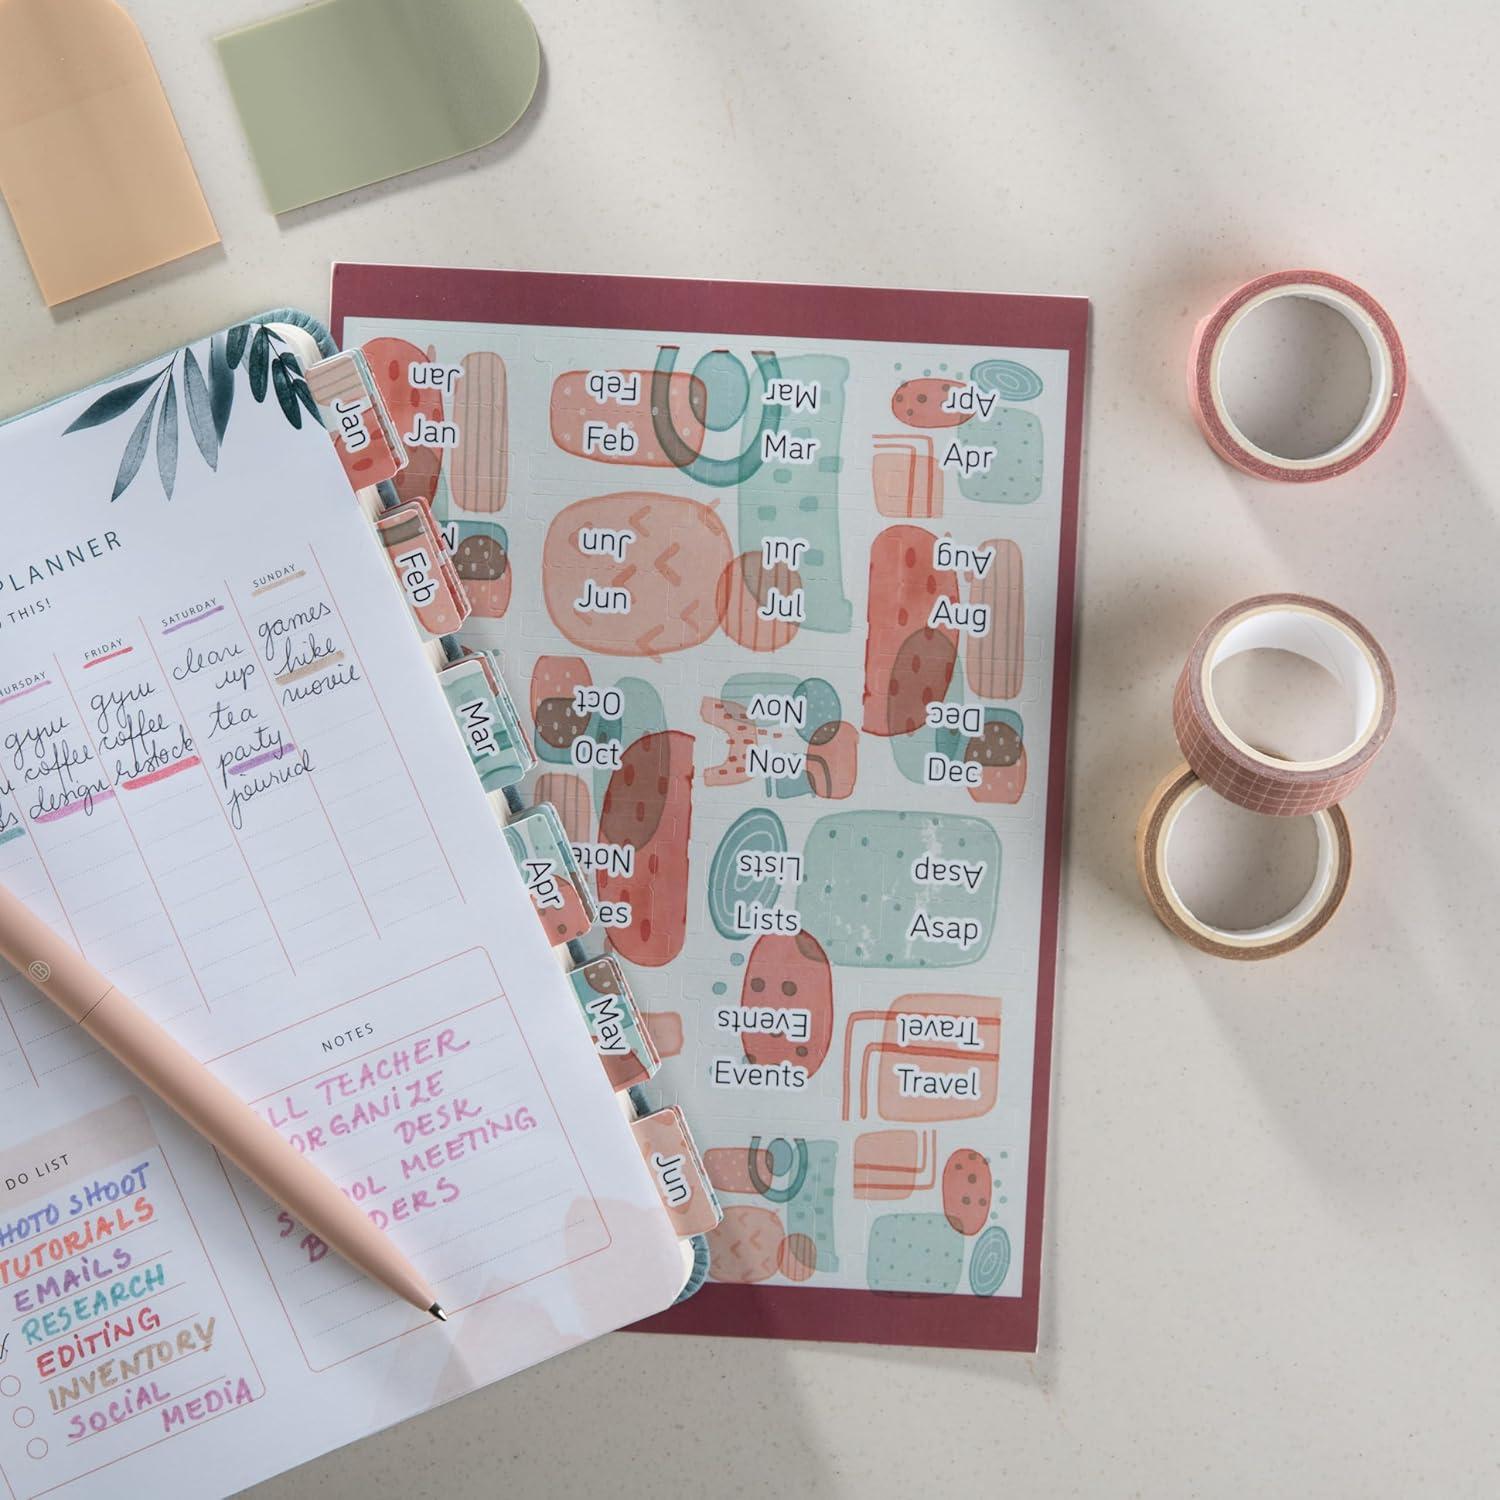 PLANNER
THIS!
FRIDAY
SATURDAY
SUNDAY
gym
coffee
design
gym
coffee
restock
clean
up
tea
party
journal
games
hike
movie
NOTES
TEACHER
ORGANIZE
DESK
MEETING
DO LIST
PHOTO SHOOT
TUTORIALS
EMAILS
RESEARCH
EDITING
INVENTORY
SOCIAL
MEDIA
Jan
Feb
Mar
Apr
May
Jun
Jan
Jan
Feb
Feb
Mar
Mar
Apr
Apr
Jun
Jun
Jul
Jul
Aug
Aug
Oct
Oct
Nov
Nov
Dec
Dec
Lists
Lists
Asap
Asap
Events
Events
Travel
Travel